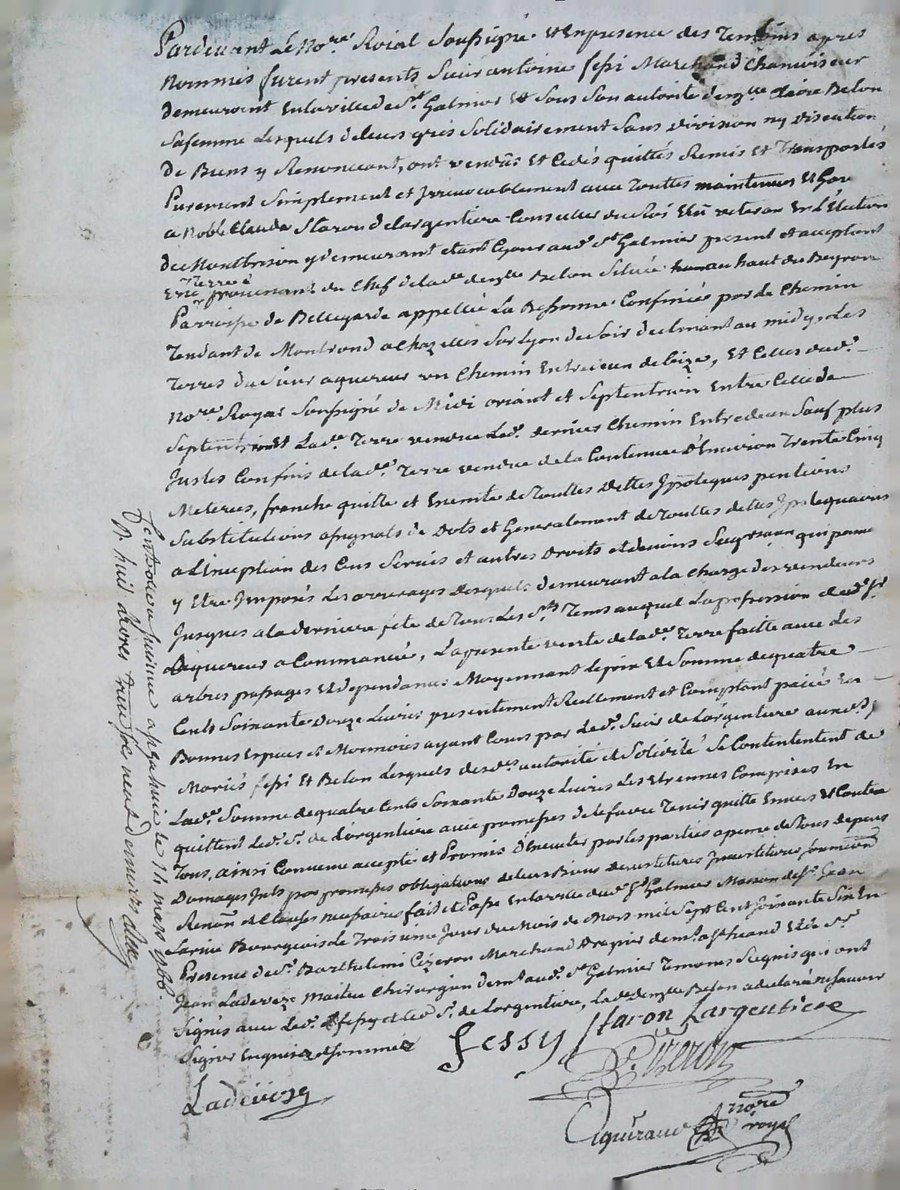 Pardevant Le No.re Roial Soussigné et en presence des Temoins apres
Nommés furent presents Sieur antoine fessi Marchand Chanvreseur
demeurant En la ville de St. Galmier et Sous Son autorité dem.lle claire Belon
Sa femme Lesquels de leurs grés Solidairement Sans division ny discution
de Biens y Renonceant, ont vendus Et Cedés quittés Remis Et Transportés
Purement Simplement et Irrevocablement avec Touttes maintenues Et Gare
a Noble Claude Staron de largentiere Conseiller du Roi Elû veteran En L'Election
de Montbrison y demeurant etant Ce jour aud. St. Galmier present et acceptant
Une Terre provenant du Chef de lad.e dem.lle Belon Située au haut du Beyron
Parroisse de Bellegarde appellée La Bessonne Confinée par Le Chemin
Tendant de Montrond a Chazelles Sur Lyon de Soir declinant au midy, Les
Terres du Sieur aquereur un Chemin Entredeux de bize, Et Celles dud.
No.re Royal Soussigné de Midi oriant et Septentrion Entre Celle de
Septentrion Et Lad.e Terre vendue Led. dernier Chemin Entredeux Sauf plus
Justes Confins de lad.e Terre vendue de la Contenue D'Environ Trente Cinq
Meterées, franche quitte et Exemte de Touttes Dettes Ypoteques pentions
Substitutions assignats de Dots et Generalement de Touttes dettes Ypotequaires
a L'Exception des Cens Servis et autres Droits et devoirs Seigneuriaux qui pouront
y Etre Imposés Les arrerages desquels demeurant a la Charge des vendeurs
Jusques a la derniere fête de Tous Les Sts. Tems auquel La possession dud. Sr.
Aquereur a Commancée, La presente vente de lad.e Terre faitte avec Les
arbres passages Et dependances Moyennant Le prix Et Somme de quatre
Cents Soixante Douze Livres presentement Reellement et Comptant paiée En
Bonnes Especes et Monnoies ayant Cours par Led. Sieur de Largentiere auxd.
Mariés fessi Et Belon Lesquels de sd. autorité et Solidité Se Contentent de
Lad.e Somme de quatre Cents Soixante Douze Livres Les Etrennes Comprises En
quittent Led. Sr. de Largentiere avec promesse de le faire Tenir quitte Envers Et Contre
Tous, ainsi Convenu accepté et Promis D'Executer par les parties a peine de Tous depens
Domages Ints. par promesses obligations de leurs Biens
Renon. et Clauses necessaires fait et Passé En la ville dud. St. Galmier Maison de Sr. Jean
Larive Bourgeois Le Troisieme Jour du Mois de Mars mil Sept Cent Soixante Six En
Presence de Sr. Barthelemi Cizeron Marchand Drapier dem.t aud. lieu et de Sr.
Jean Ladeveze Maitre Chirurgien dem.t aud. St. Galmier Temoins Requis qui ont
Signés avec Led. fessy et led. Sr. de Largentiere, Lad.e dem.lle Belon a declaré ne Scavoir
Signer Enquise et Sommée
fessy Staron Largentiere
Cizeron
Ladeveze
Aiguiraud
nore
royal
Controllé a St. Galmier le 14 mars 1766.
R. huit livres trois sols neuf deniers